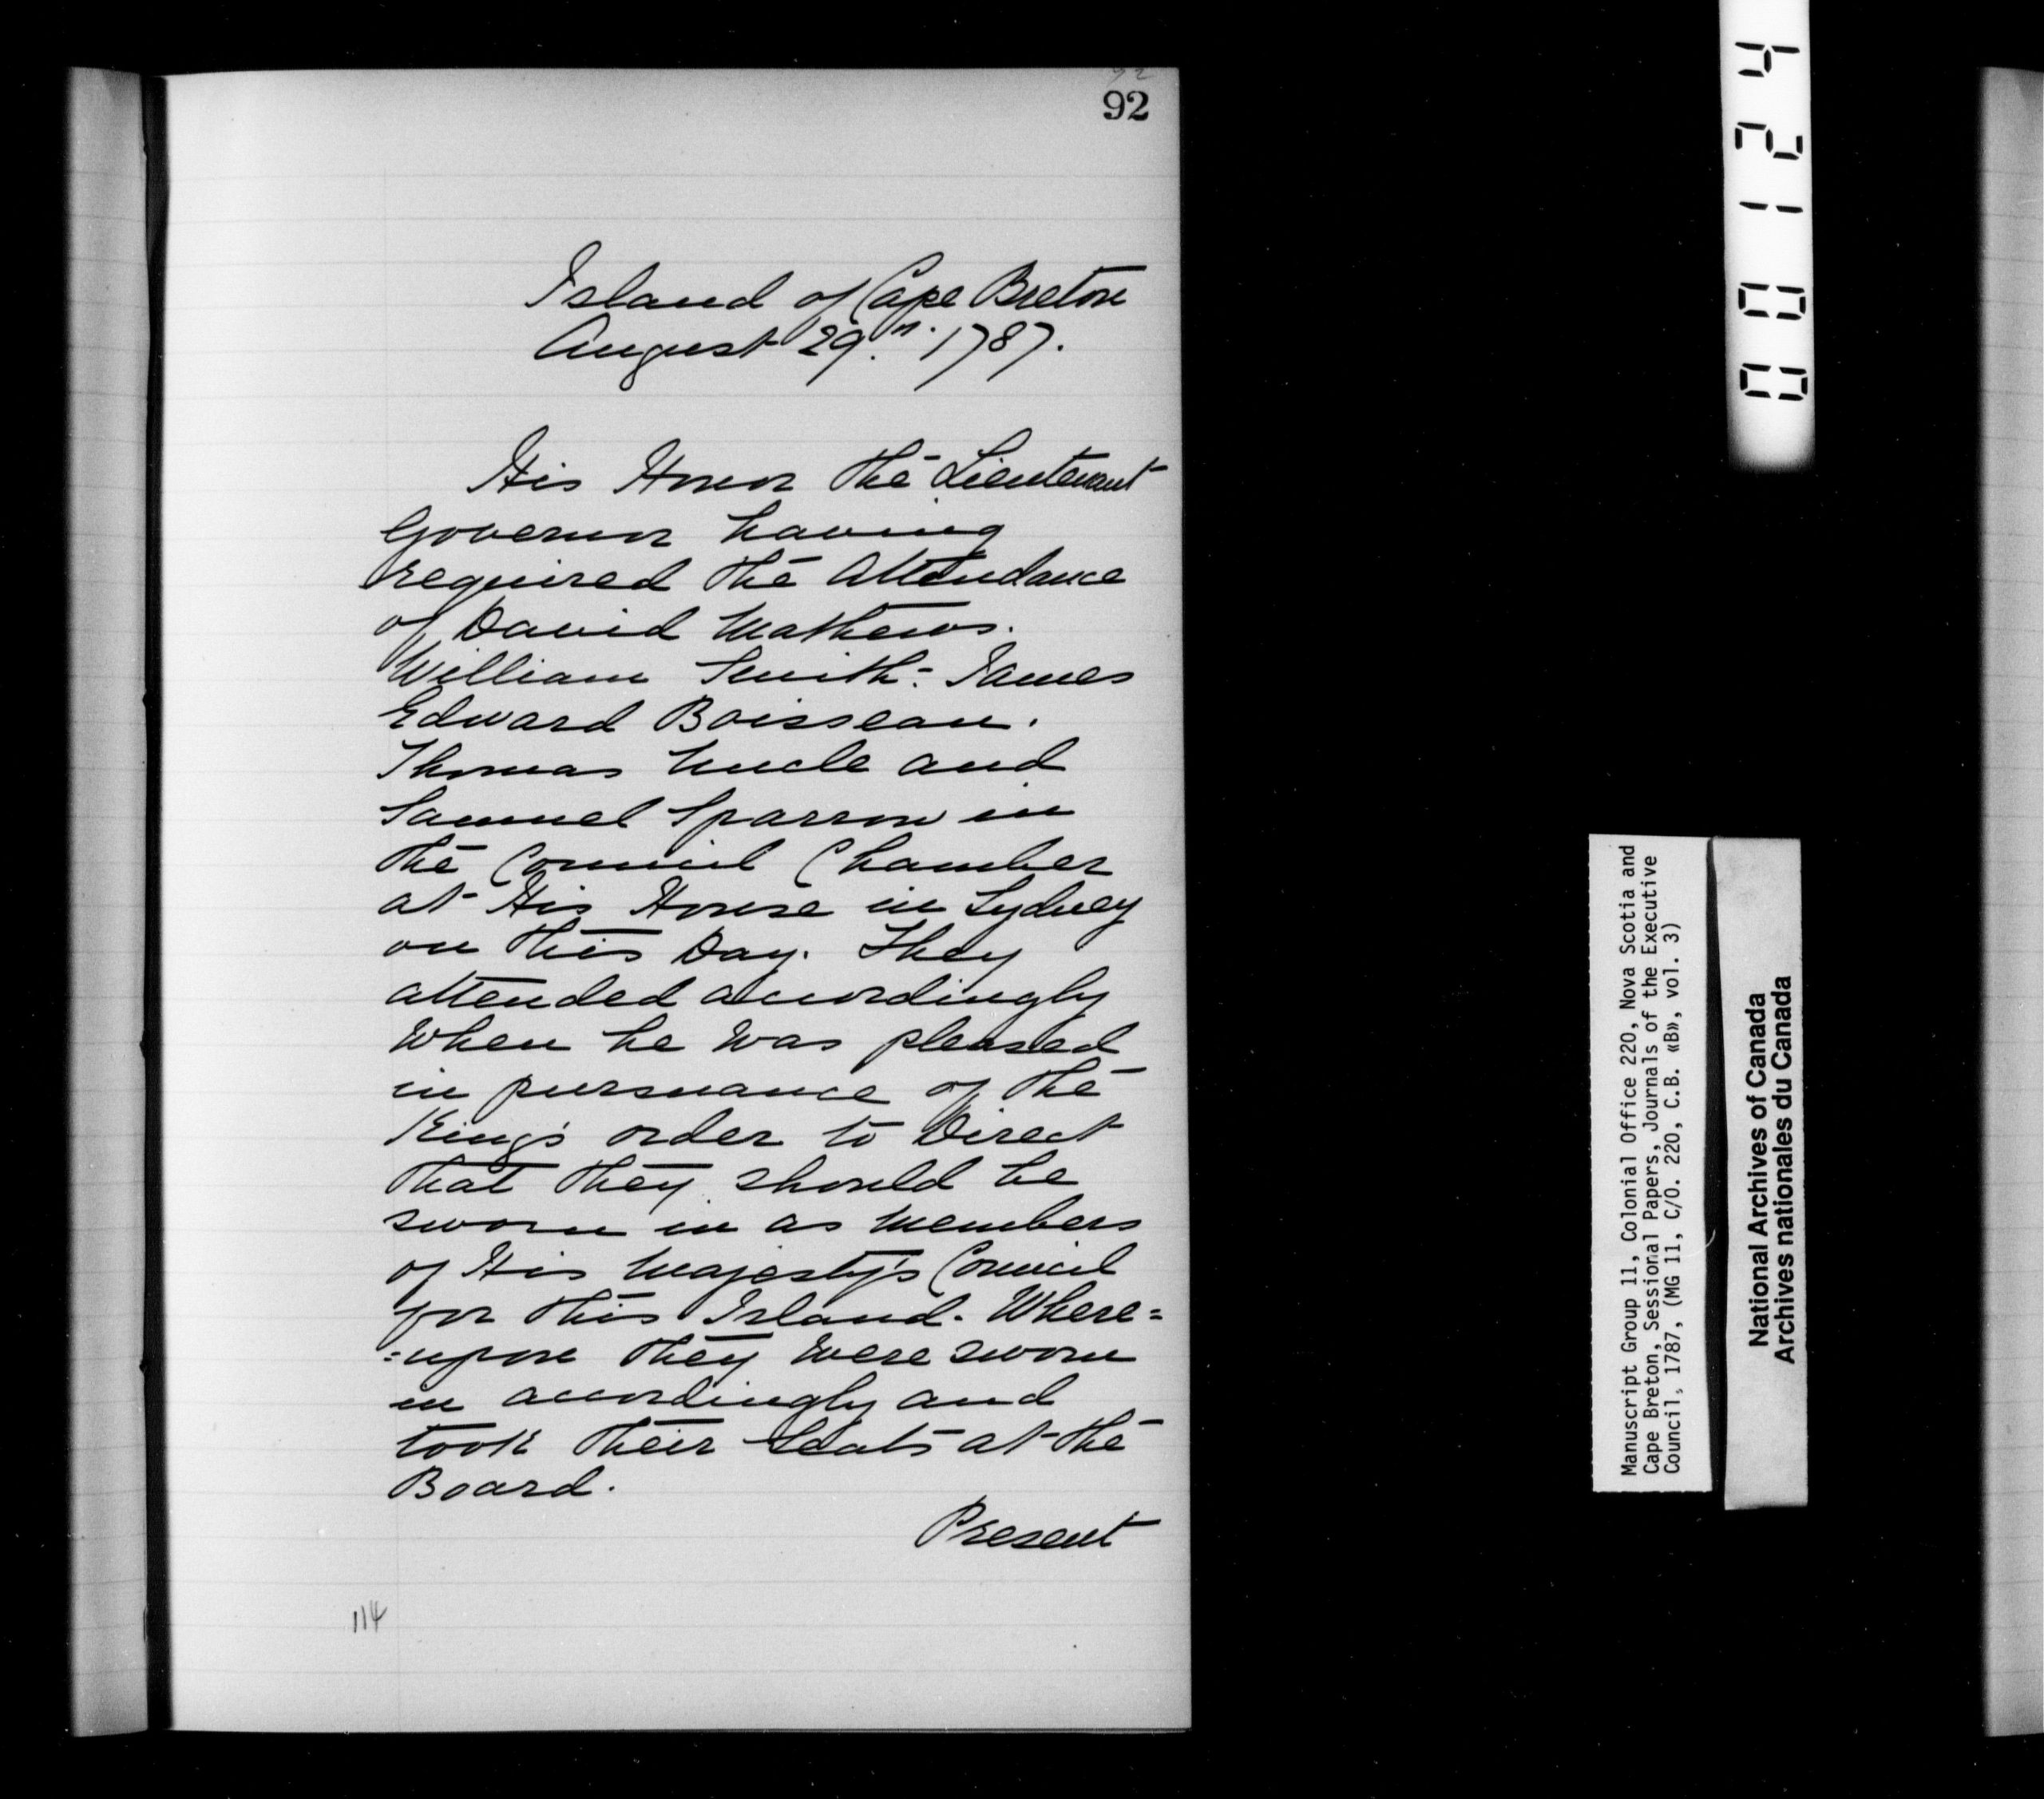 92
92
Island of Cape Breton
August 29th. 1787.
His Honor the Lieutenant
Governor having
required the Attendance
of David Mathews.
William Smith- James
Edward Boisseau.
Thomas Uncle and
Samuel Sparrow in
the Council Chamber
at His House in Sydney
on this Day. They
attended accordingly
When he was pleased
in pursuance of the
King's order to Direct
that they should be
sworn in as Members
of His Majesty's Council
for this Island. Where=
=upon they were sworn
in accordingly and
took their Seats at the
Board.
Present
114
00124
Manuscript Group 11, Colonial Office 220, Nova Scotia and
Cape Breton, Sessional Papers, Journals of the Executive
Council, 1787, (MG 11, C/O. 220, C.B. «B», vol. 3)
National Archives of Canada
Archives nationales du Canada